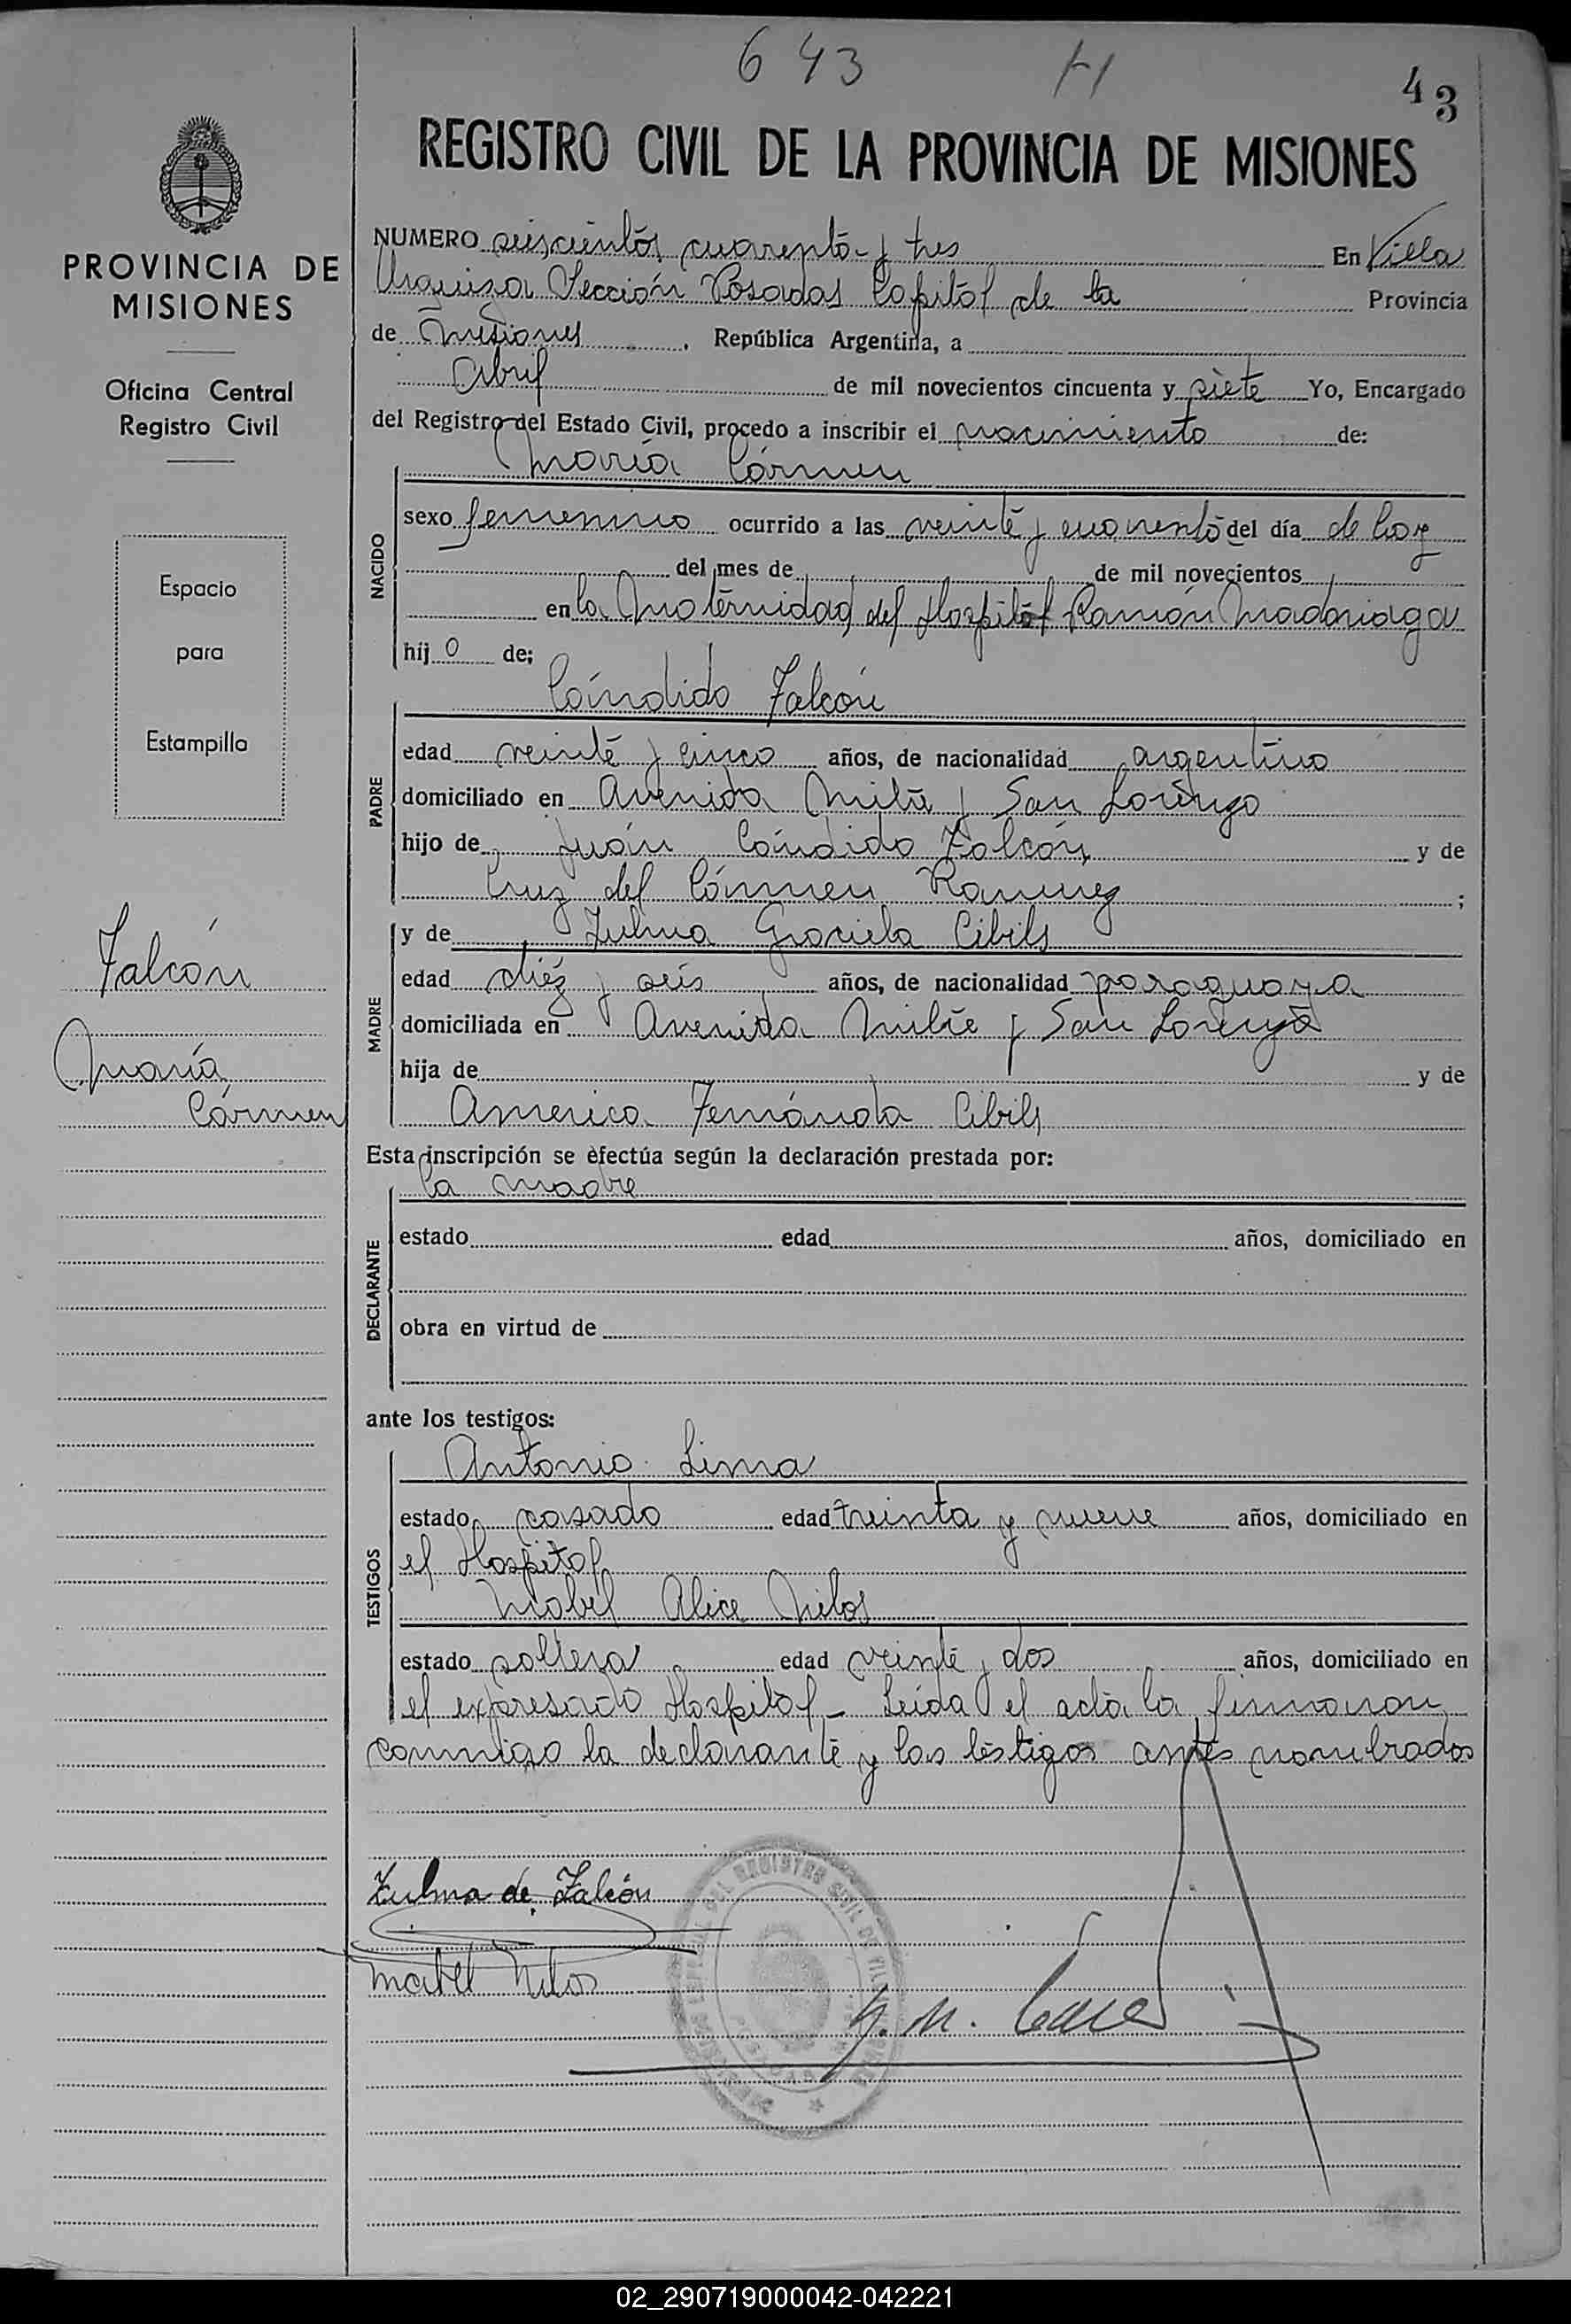 643 H
43
REGISTRO CIVIL DE LA PROVINCIA DE MISIONES
PROVINCIA DE
MISIONES
Oficina Central
Registro Civil
Espacio
para
Estampilla
Falcón
María
Cármen
NUMERO seiscientos cuarenta y tres En Villa
Urquiza Sección Posadas Capital de la Provincia
de Misiones, República Argentina, a
Abril de mil novecientos cincuenta y siete Yo, Encargado
del Registro del Estado Civil, procedo a inscribir el nacimiento de:
María Cármen
NACIDO
sexo femenino ocurrido a las veinte y cuarenta del día de hoy
del mes de de mil novecientos
en la Maternidad del Hospital Ramón Madariaga
hijo de:
Cándido Falcón
PADRE
edad veinte y cinco años, de nacionalidad argentino
domiciliado en Avenida Mitre y San Lorenzo
hijo de Juán Cándido Falcón y de
Cruz del Cármen Ramirez ;
MADRE
y de Zulma Graciela Cibils
edad diéz y seis años, de nacionalidad paraguaya
domiciliada en Avenida Mitre y San Lorenzo
hija de y de
America Fernánda Cibils
Esta inscripción se efectúa según la declaración prestada por:
la madre
DECLARANTE
estado edad años, domiciliado en
obra en virtud de
ante los testigos:
Antonio Lima
TESTIGOS
estado casado edad treinta y nueve años, domiciliado en
el Hospital
Mabel Alice Milos
estado soltera edad veinte y dos años, domiciliado en
el expresado Hospital - Leida el acta la firmaron
conmigo la declarante y los testigos antes nombrados
Zulma de Falcón
Mabel Milos
02_290719000042-042221